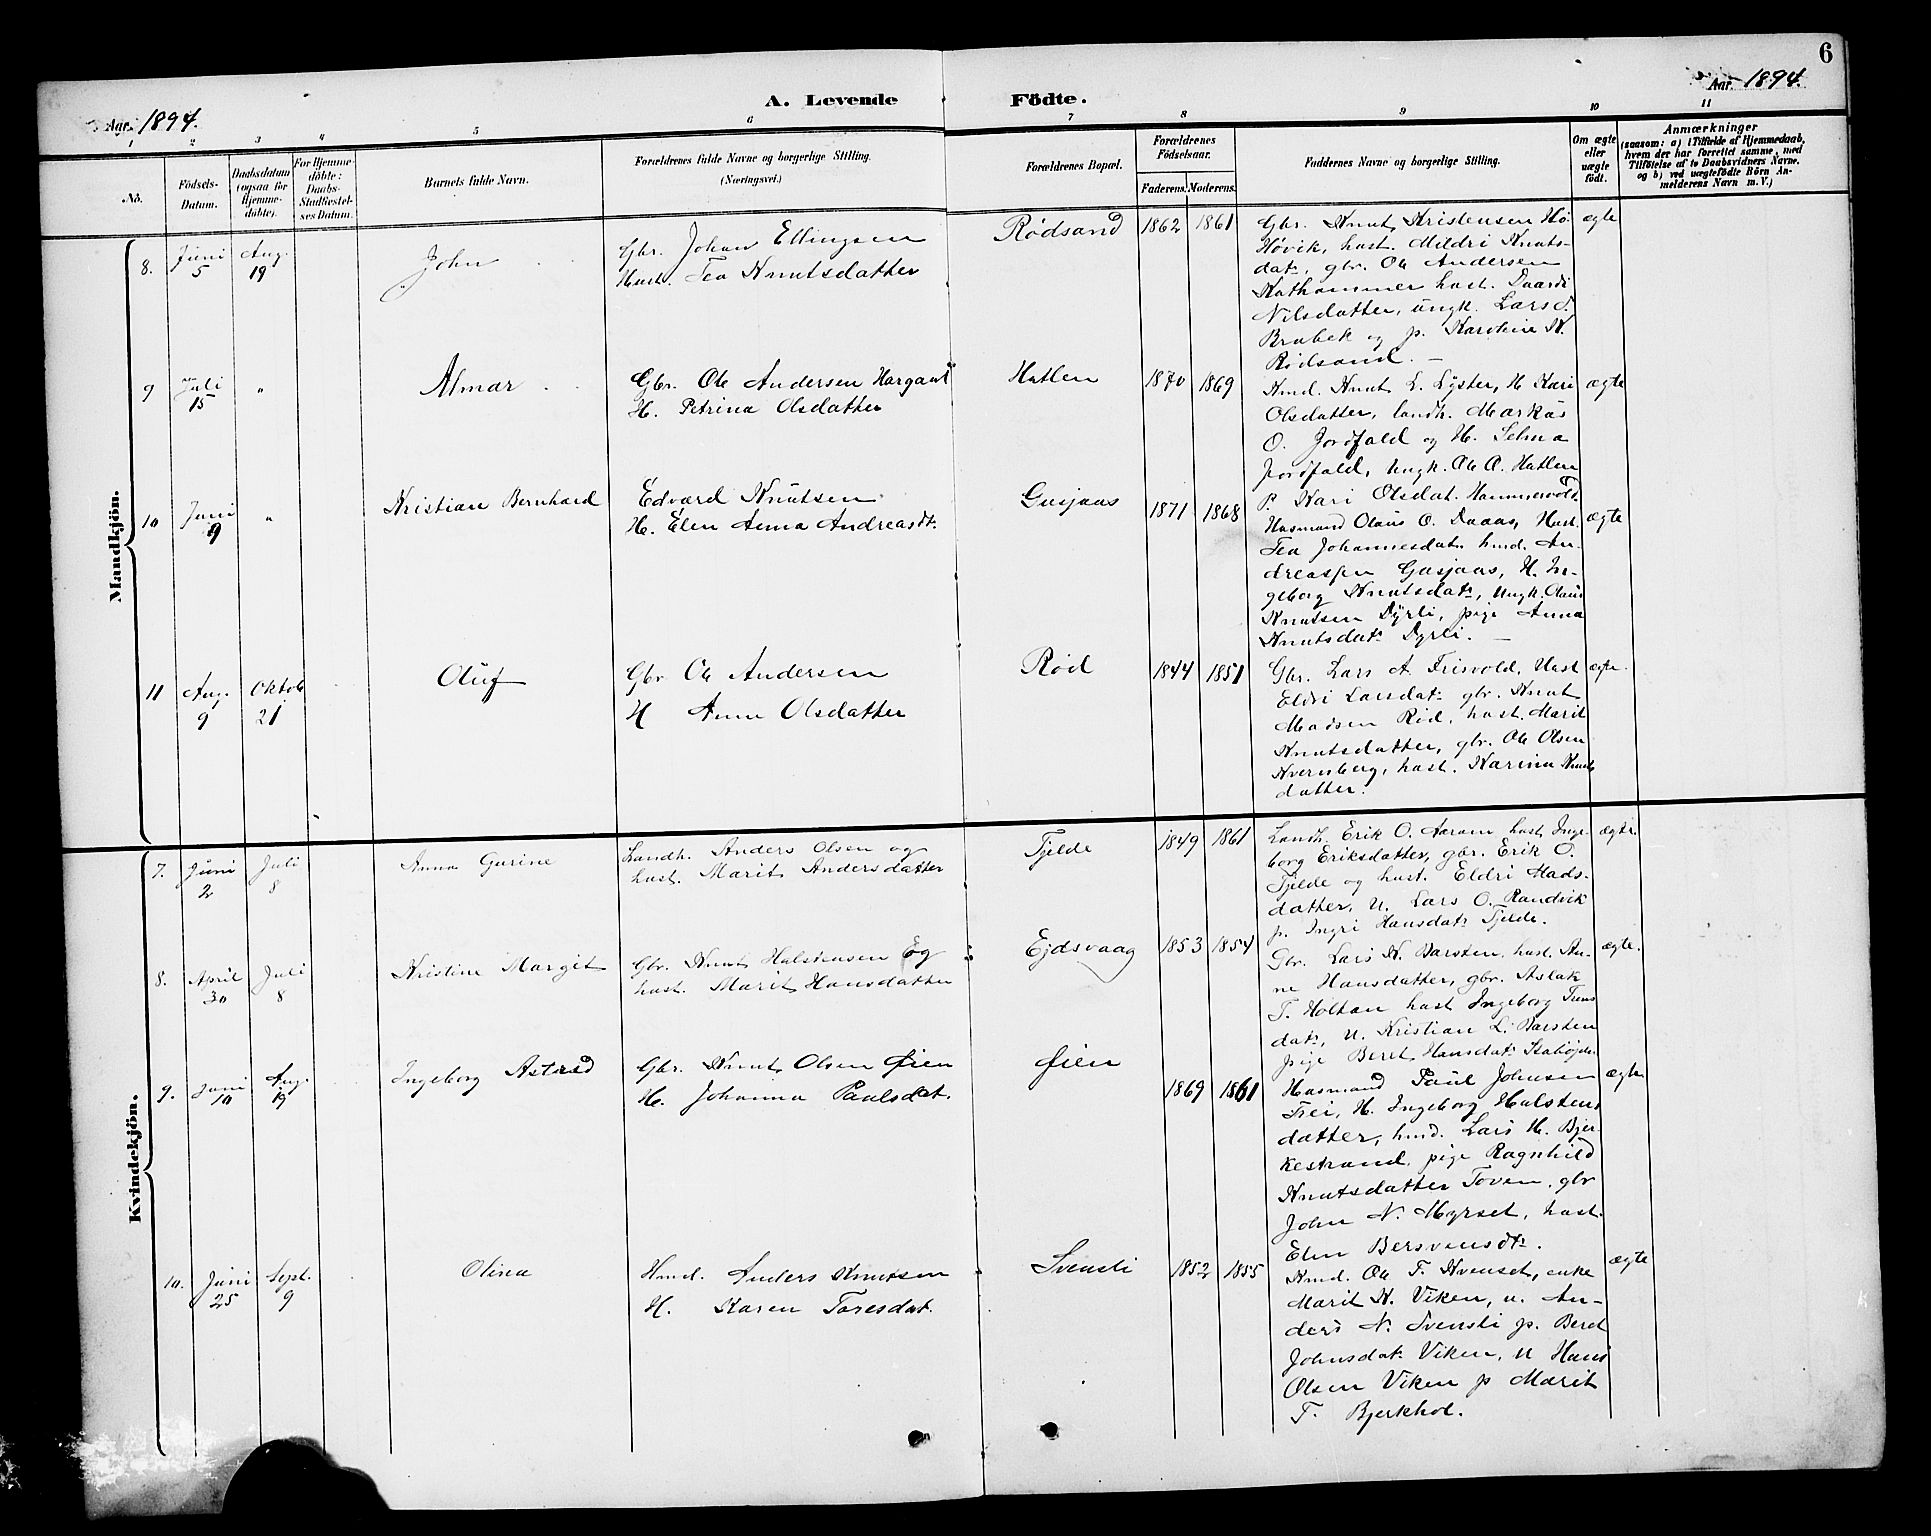 6
Aar 1894.
A. Levende Födte.
Aar 1894.
1 2 3 4 5 6 7 8 9 10 11
No.
Födsels-Datum.
Daabsdatum (ogsaa for Hjemme-döbte).
For Hjemme-döbte: Daabs-Stadfæstel-ses Datum.
Barnets fulde Navn.
Forældrenes fulde Navne og borgerlige Stilling.
(Næringsvei.)
Forældrenes Bopæl.
Forældrenes Födselsaar.
Faderens. Moderens.
Faddernes Navne og borgerlige Stilling.
Om ægte eller uægte født.
Anmærkninger
(saasom: a) i Tilfælde af Hjemmedaab,
hvem der har forrettet samme, med
Tilföielse af to Daabsvidners Navne.
og b) ved uægtefödte Börn An-
melderens Navn m. V.)
Mandkjön.
8. Juni 5 Aug. 19 John
Gbr. Johan Ellingsen
Hust. Tea Knutsdatter
Rødsand 1862 1861
Gbr. Knut Kristensen Hø
Høvik, hust. Mildri Knuts-
dat., gbr. Ole Andersen
Kathammer hust. Daardi
Nilsdatter, ungk. Lars J.
Brubek og p. Karoline K.
Rødsand. —
ægte
9 Juli 15 " Almar
Gbr. Ole Andersen Hargaut
H. Petrina Olsdatter
Hatlen 1870 1869
Kmd. Knut L. Lyster, H. Kari
Olsdatter, landh. Markus
O. Jordfald og H. Selma
Jordfald, Ungk. Ole A. Hatlen
P. Kari Olsdat. Hammervold
ægte
10 Juni 9 " Kristian Bernhard
Edvard Knutsen
H. Elen Anna Andreasdt.
Gusjaas 1871 1868
Husmand Olaus O. Daaas, Hust.
Tea Johannesdat. hmd. An-
dreassen Gusjaas, H. In-
geborg Knutsdat., Ungk. Olaus
Knutsen Dyrli, pige Anna
Knutsdat. Dyrli. —
ægte
11 Aug. 9 Oktob 21 Oluf
Gbr Ole Andersen
H Anne Olsdatter
Rød 1844 1851
Gbr. Lars A. Frisvold, Hust
Eldri Larsdat. gbr. Knut
Madsen Rød, hust. Marit
Knutsdatter, gbr. Ole Olsen
Kvernberg, hust. Karina Knuts
datter.
ægte.
Kvindekjön.
7. Juni 2 Juli 8 Anna Gurine
Landh. Anders Olsen og
hust. Marit Andersdatter
Tjelde 1849 1861
Landh. Erik O. Aaram hust. Inge-
borg Eriksdatter, gbr. Erik O.
Tjelde og hust. Eldri Mads-
datter, u. Lars O. Randvik
p. Ingri Hansdat. Tjelde.
ægte.
8. April 30 Juli 8 Kristine Margit
Gbr. Knut Halstensen Eg
hust. Marit Hansdatter
Ejdsvaag 1853 1854
Gbr. Lars K. Barsten, hust. An-
ne Hansdatter, gbr. Aslak
T. Holtan hust Ingeborg Trens
dat., u. Kristian L. Barsten
pige Beret Hansdat.
ægte.
9. Juni 10 Aug. 19 Ingeborg Astrid
Gbr. Knut Olsen Øien
H. Johanna Paulsdat.
Øien 1869 1861
Husmand Paul Johnsen
Trei, H. Ingeborg Halstens
datter, hmd. Lars H. Bjer-
kestrand, pige Ragnhild
Knutsdatter Toven, gbr
John N. Myrset, hust.
Elen Bersvensdt.
ægte
10. Juni 25 Sept. 9 Olina
Hmd. Anders Knutsen
H. Karen Toresdat.
Svensli 1852 1855
Kmd. Ole T. Kvenset, enke
Marit K. Viken, u. An-
ders N. Svensli p. Beret
Johnsdat. Viken, u Hans
Olsen Viken p Marit
T. Bjerkhol.
ægte